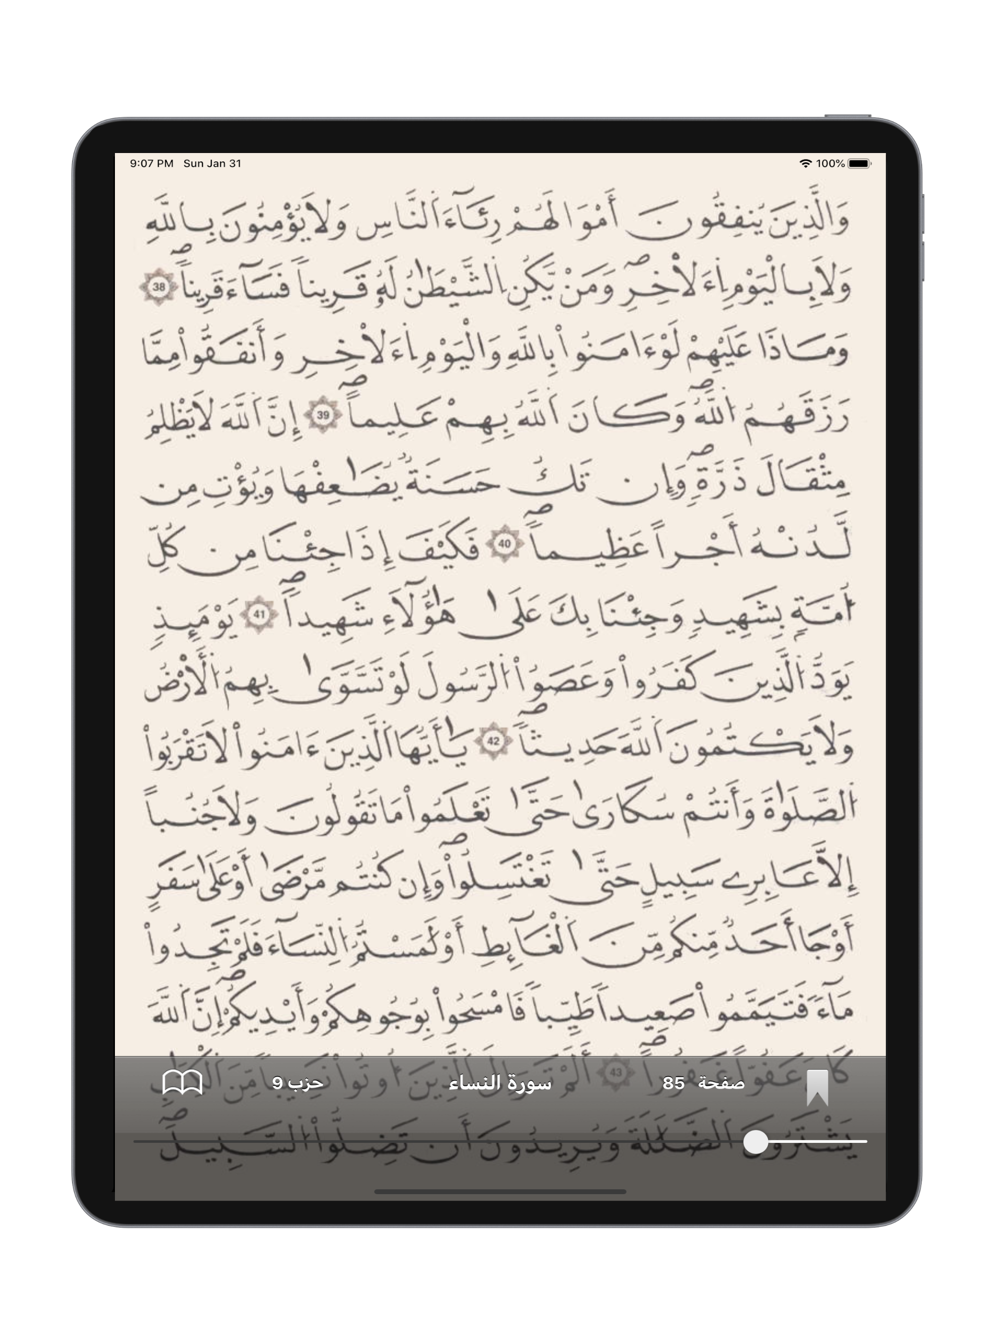 9:07 PM Sun Jan 31 100%
وَالَّذِينَ يُنفِقُونَ أَمْوَالَهُمْ رِئَآءَ اَ۬لنَّاسِ وَلَا يُؤْمِنُونَ بِاللَّهِ
وَلَا بِالْيَوْمِ اِ۬ءَلَاخِرِۖ وَمَنْ يَّكُنِ اِ۬لشَّيْطَٰنُ لَهُۥ قَرِيناٗ فَسَآءَ قَرِيناٗۖ 38
وَمَاذَا عَلَيْهِمْ لَوَ ءَامَنُواْ بِاللَّهِ وَالْيَوْمِ اِ۬ءَلَاخِرِ وَأَنفَقُواْ مِمَّا
رَزَقَهُمُ اُ۬للَّهُۖ وَكَانَ اَ۬للَّهُ بِهِمْ عَلِيماًۖ 39 إِنَّ اَ۬للَّهَ لَا يَظْلِمُ
مِثْقَالَ ذَرَّةٖۖ وَإِن تَكُ حَسَنَةٞ يُضَٰعِفْهَا وَيُوتِ مِن
لَّدُنْهُ أَجْراً عَظِيماٗۖ 40 فَكَيْفَ إِذَا جِئْنَا مِن كُلِّ
أُمَّةِۢ بِشَهِيدٖ وَجِئْنَا بِكَ عَلَىٰ هَٰؤُلَآءِ شَهِيداٗۖ 41 يَوْمَئِذٖ
يَوَدُّ اُ۬لذِينَ كَفَرُواْ وَعَصَوُاْ اُ۬لرَّسُولَ لَوْ تَسَّوَّىٰ بِهِمُ اُ۬لَارْضُ
وَلَا يَكْتُمُونَ اَ۬للَّهَ حَدِيثاٗۖ 42 يَٰأَيُّهَا اَ۬لذِينَ ءَامَنُواْ لَا تَقْرَبُواْ
اُ۬لصَّلَوٰةَ وَأَنتُمْ سُكَارَىٰ حَتَّىٰ تَعْلَمُواْ مَا تَقُولُونَ وَلَا جُنُباً
إِلَّا عَابِرِے سَبِيلٍ حَتَّىٰ تَغْتَسِلُواْۖ وَإِن كُنتُم مَّرْضَىٰ أَوْ عَلَىٰ سَفَرٍ
أَوْ جَا أَحَدٞ مِّنكُم مِّنَ اَ۬لْغَآئِطِ أَوْ لَٰمَسْتُمُ اُ۬لنِّسَآءَ فَلَمْ تَجِدُواْ
مَآءٗ فَتَيَمَّمُواْ صَعِيداٗ طَيِّباٗ فَامْسَحُواْ بِوُجُوهِكُمْ وَأَيْدِيكُمُۥۖ إِنَّ اَ۬للَّهَ
كَانَ عَفُوّاً غَفُوراًۖ 43 أَلَمْ تَرَ إِلَى اَ۬لذِينَ أُوتُواْ نَصِيباٗ مِّنَ اَ۬لْكِتَٰبِ
صفحة 85 سورة النساء حزب 9
يَشْتَرُونَ اَ۬لضَّلَٰلَةَ وَيُرِيدُونَ أَن تَضِلُّواْ اُ۬لسَّبِيلَۖ